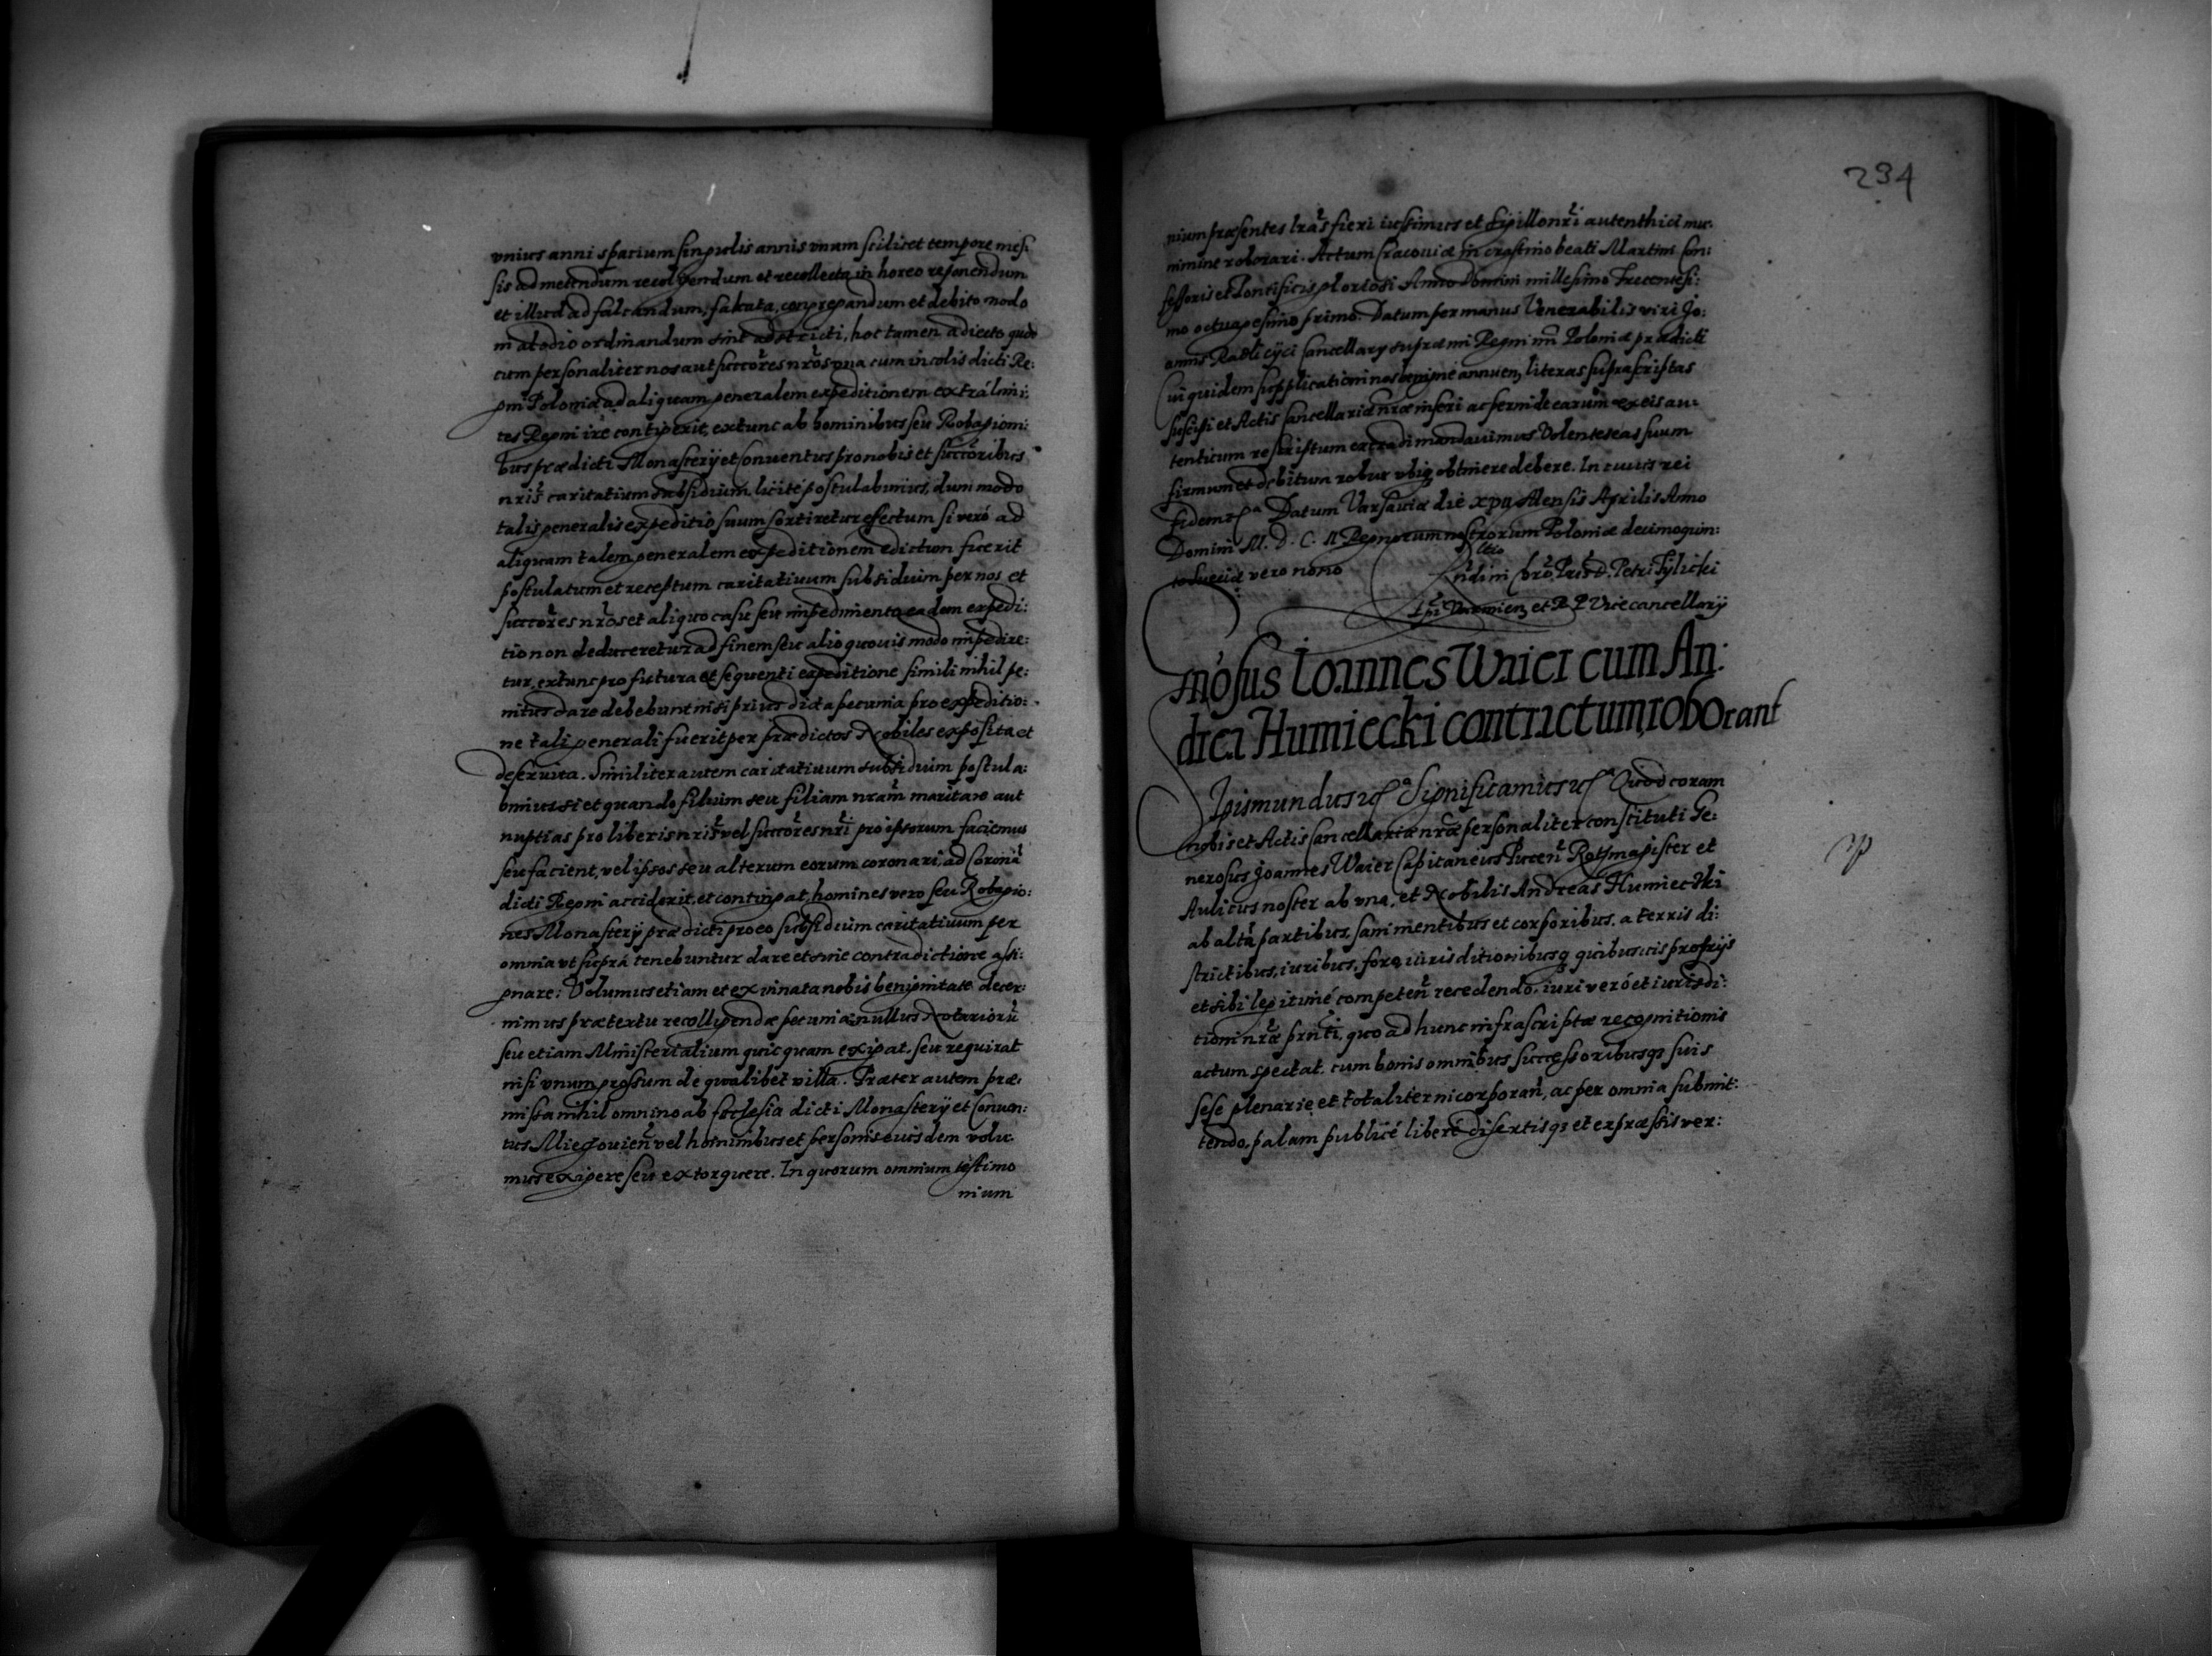 vnius anni spacium singulis annis vnam scilicet tempore mes:
sis ad metendum recolligendum et recollecta in horeo reponendum
et illud ad falcandum, falcata, congregandum et debito modo
in alodio ordinandum sint adstricti, hoc tamen adiecto quod
cum personaliter nos aut succores nros vna cum incolis dicti Re:
gni Poloniæ ad aliquam generalem expeditionem extra limi:
tes Regni ire contigerit, extunc ab hominibus seu Robagioni:
bus prædicti Monasterij et Conuentus pro nobis et succoribus
nris caritatiuum subsidium licite postulabimus, dum modo
talis generalis expeditio suum sortiretur efectum si veró ad
aliquam talem generalem expeditionem edictum fuerit
postulatum et receptum caritatiuum subsidium per nos et
succores nros et aliquo casu seu impedimento eadem expedi:
tio non deduceretur ad finem seu alio quouis modo impedire:
tur, extunc pro futura et sequenti expeditione simili nihil pe:
nitus dare debebunt nisi prius dicta pecunia pro expeditio:
ne tali generali fuerit per prædictos Nobiles exposita et
deseruita. Similiter autem caritatiuum subsidium postula:
bimus si et quando filium seu filiam nram maritare aut
nuptias pro liberis nris vel succores nri pro ipsorum faciemus
seu facient, vel ipsos seu alterum eorum coronari, ad Corona
dicti Regni acciderit, et contingat, homines vero seu Robagio:
nes Monasterij prædicti pro eo subsidium caritatiuum per
omnia vt suprá tenebuntur dare et sine contradictione assi:
gnare: Volumus etiam et ex innata nobis benignitate decer:
nimus prætextu recolligendæ pecuniæ nullus Notarioru
seu etiam Ministerialium quicquam exigat, seu requirat
nisi vnum grossum de qualibet villa. Præter autem præ:
missa nihil omnino ab Ecclesia dicti Monasterij et Conuen:
tus Miegouien vel hominibus et personis eiusdem volu:
mus exigere seu extorquere. In quorum omnium testimo
nium
234
nium præsentes lras fieri iussimus et sigilli nri autenthici mu:
nimine roborari. Actum Cracouiæ in crastino beati Martini Con:
fessoris et Pontificis gloriosi Anno Domini millesimo Trecentesi:
mo octuagesimo primo. Datum per manus Venerabilis viri Jo:
annis Radlicyci Cancellarij supræmi Regni nri Poloniæ prædicti
Cui quidem supplicationi nos benigne annuen, literas suprascriptas
suscipi et Actis Cancellariæ nræ inseri ac fermide earum ex eis au:
tenticum rescriptum extradi mandauimus Volentes eas suum
firmum et debitum robur vbiq obtinere debere. In cuius rei
fidem etc Datum Varsauiæ die Mensis Aprilis Anno
Domini M. D. C. II Regnorum nostrorum Poloniæ decimoquin:
to Sueciæ vero nono
Rndi in Chro Pris D. Petri Tylicki
Epi Varmien, et R P Vicecancellarij
Gnosus Ioannes Waier cum An:
drea Humiecki contractum roborant
Sigismundus etc Significamus etc Quod coram
nobis et Actis Cancellariæ nræ personaliter constituti Ge:
nerosus Joannes Waier Capitaneus Pucen Rothmagister et
Aulicus noster ab vna, et Nobilis Andreas Humiecki
ab alta partibus, sani mentibus et corporibus, a terris di:
strictibus, iuribus, foro, iurisditionibusq quibusuis proprijs
et sibi legitimé competen recedendo, iuri veró et iurisdi:
tioni nræ prnti, quo ad hunc infrascriptæ recognitionis
actum spectat. cum bonis omnibus successoribusq suis
sese plenarie et totaliter incorporan, ac per omnia submit:
tendo, palam publicé liberé disertisq et expræssis ver: